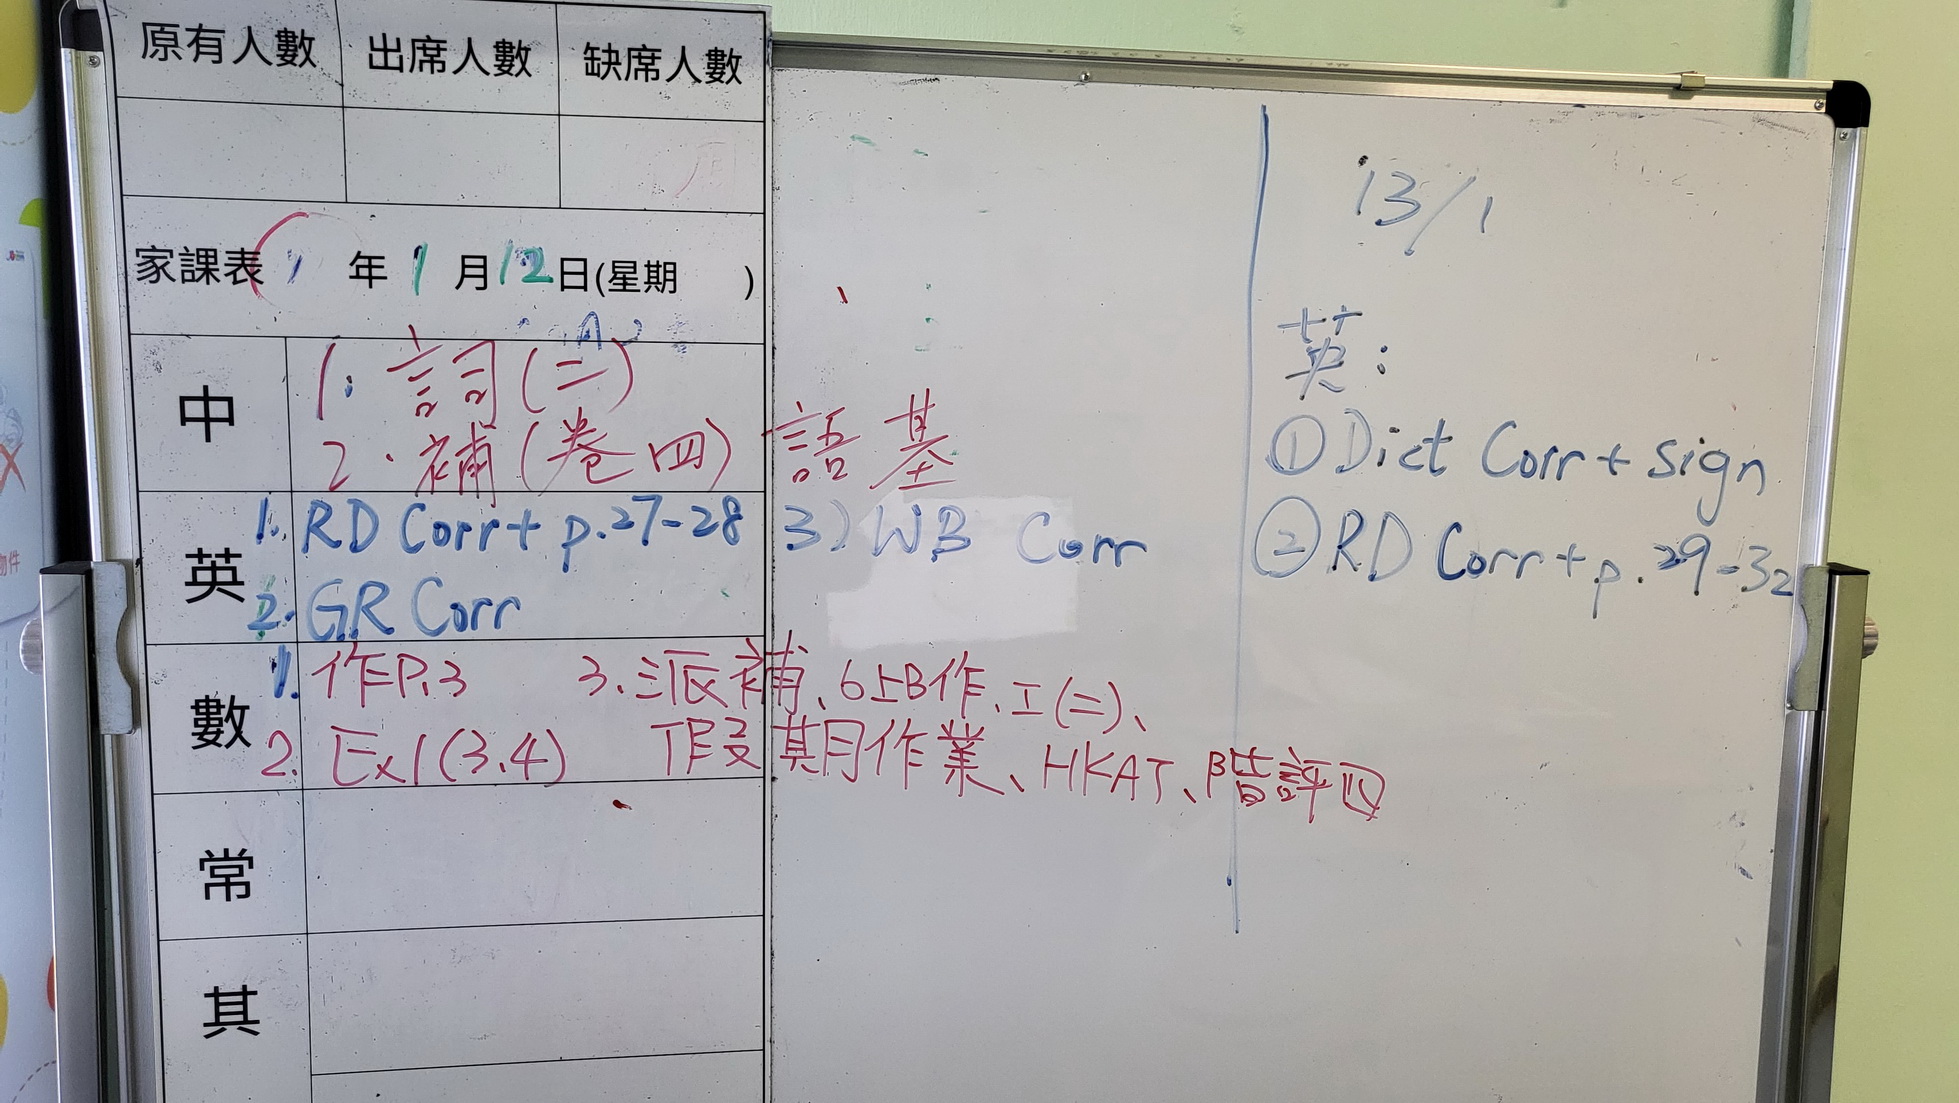 原有人數 出席人數 缺席人數
家課表 年1月12日(星期 )
中
1. 詞(二)
2. 補(卷四) 語基
英
1. RD Corr + p.27-28 3) WB Corr
2. GR Corr
數
1. 作P.3 3. 派補、6上B作、工(二)、
2. Ex1(3.4) 假期作業、HKAT、階評四
常
其
13/1
英:
① Dict Corr + sign
② RD Corr + p.29-32